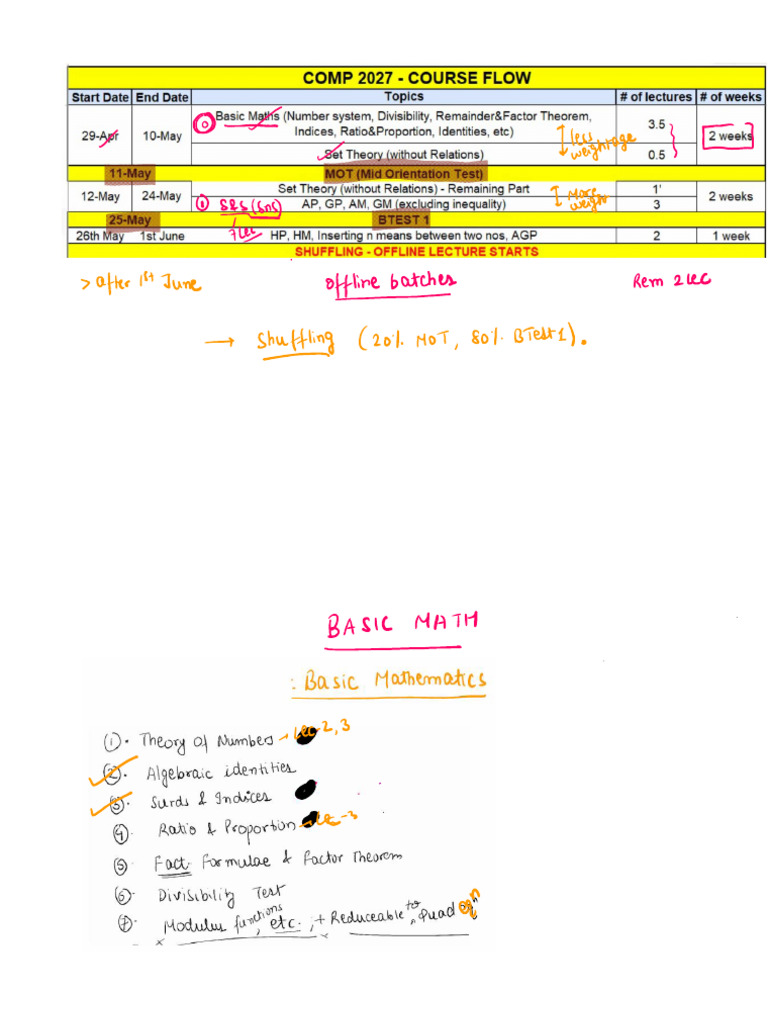 COMP 2027 - COURSE FLOW
Start Date End Date Topics # of lectures # of weeks
29-Apr 10-May 0 Basic Maths (Number system, Divisibility, Remainder&Factor Theorem, Indices, Ratio&Proportion, Identities, etc) less weightage 3.5 2 weeks
Set Theory (without Relations) 0.5
11-May MOT (Mid Orientation Test)
12-May 24-May Set Theory (without Relations) - Remaining Part More weight 1' 2 weeks
1 S&S (SnS) AP, GP, AM, GM (excluding inequality) 3
25-May BTEST 1
26th May 1st June 7 Lec HP, HM, Inserting n means between two nos, AGP 2 1 week
SHUFFLING - OFFLINE LECTURE STARTS
> after 1st June offline batches Rem 2 lec
→ Shuffling (20% MOT, 80% BTest1).
BASIC MATH
: Basic Mathematics
①. Theory of Numbers - Lec-2,3
②. Algebraic identities
③. Surds & Indices
④. Ratio & Proportion - Lec-3
⑤. Fact. Formulae & Factor Theorem
⑥. Divisibility Test
⑦. Modulus functions, etc., + Reduceable to Quad eqn